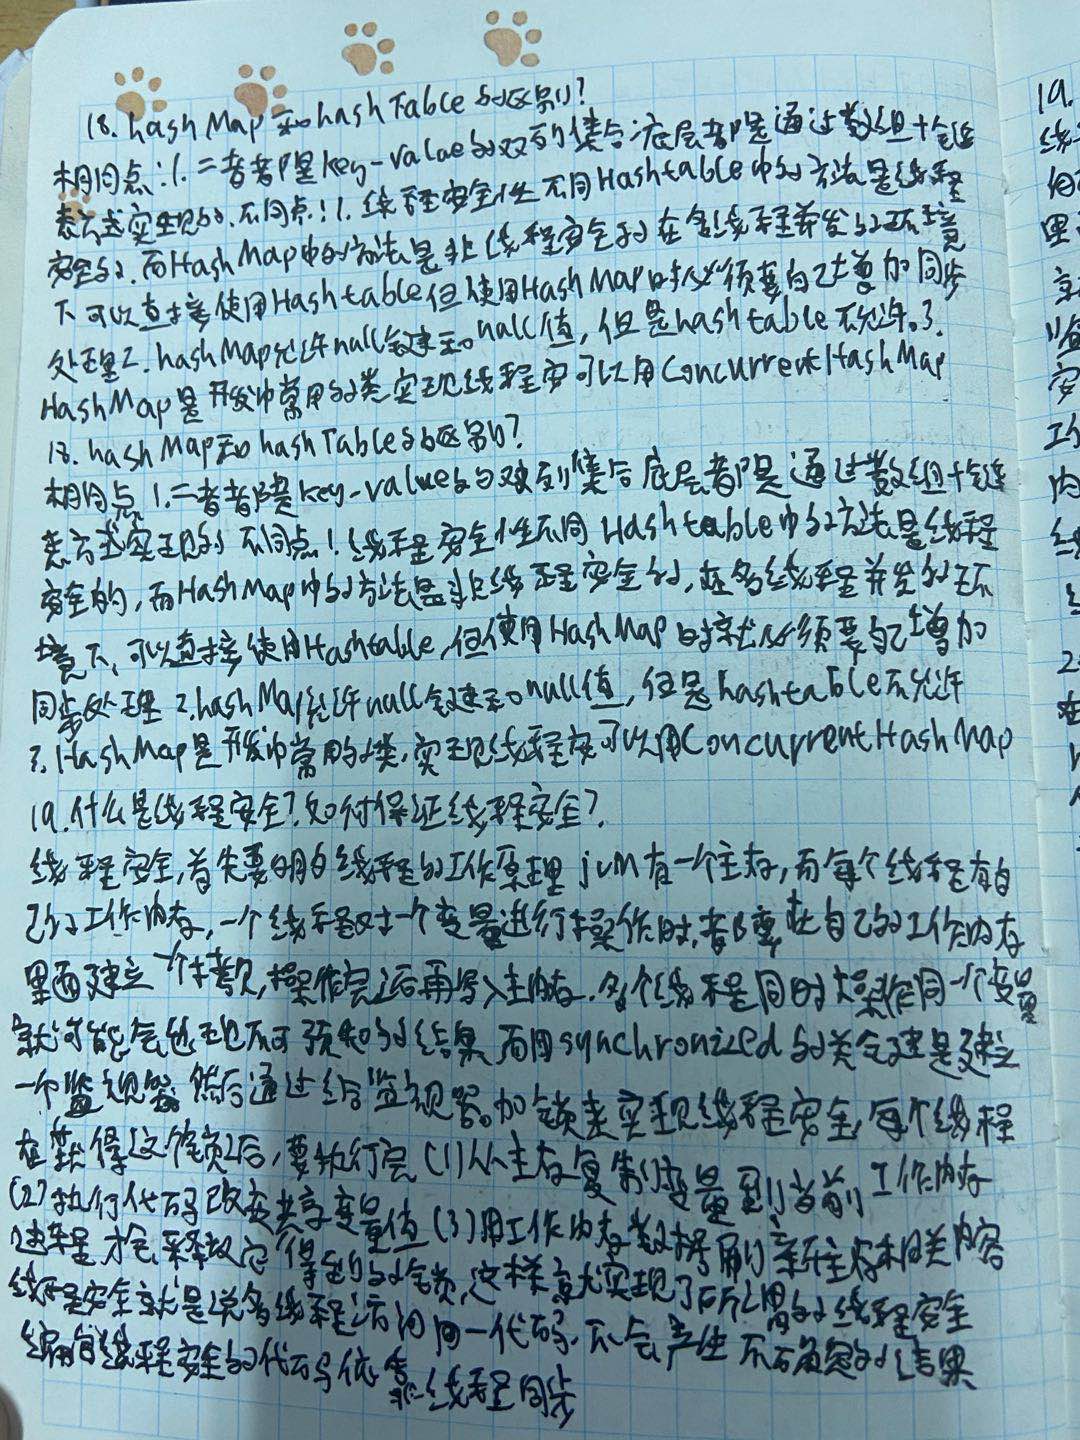 18. hashMap和hashTable的区别?
相同点:1.二者都是key-value的双列集合底层都是通过数组十链
表方式实现的.不同点:1.线程安全性不同Hashtable中的方法是线程
安全的.而HashMap中的方法是非线程安全的在多线程并发的环境
下可以直接使用Hashtable但使用HashMap时必须要自己增加同步
处理2.hashMap允许null键和null值,但是hashtable不允许。3.
HashMap是开发中常用的类实现线程安可以用ConcurrentHashMap
18. hashMap和hashTable的区别?
相同点1.二者都是key-value的双列集合底层都是通过数组十链
表方式实现的 不同点1线程安全性不同Hashtable中的方法是线程
安全的,而HashMap中的方法是非线程安全的,在多线程并发的环
境下,可以直接使用Hashtable,但使用HashMap时就必须要自己增加
同步处理 2.hashMap允许null键和null值,但是hashtable不允许
3.HashMap是开发中常用的类,实现线程安可以用ConcurrentHashMap
19.什么是线程安全?如何保证线程安全?
线程安全,首先要明白线程的工作原理jvm有一个主存,而每个线程有自
己的工作内存,一个线程对一个变量进行操作时,都要在自己的工作内存
里面建立一个拷贝,操作完之后再写入主内存.多个线程同时操作同一个变量
就可能会出现不可预知的结果 而用synchronized的关键是建立
一个监视器 然后通过给监视器加锁来实现线程安全,每个线程
在获得这个锁之后,要执行完(1)从主存复制变量到当前工作内存
(2)执行代码改变共享变量值(3)用工作内存数据刷新主存相关内容
才会释放它得到的锁,这样就实现了所谓的线程安全
线程安全就是说多线程访问同一代码,不会产生不确定的结果
编写线程安全的代码依靠线程同步
19.